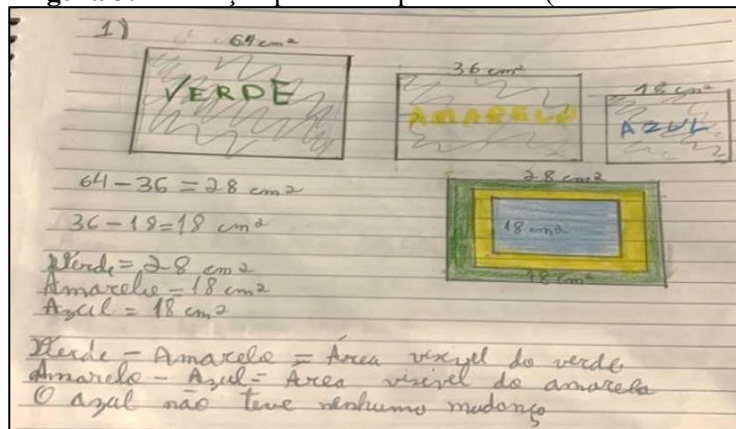 1)
64 cm²
VERDE
36 cm²
AMARELO
18 cm²
AZUL
64 - 36 = 28 cm²
36 - 18 = 18 cm²
28 cm²
18 cm²
18 cm²
Verde = 28 cm²
Amarelo = 18 cm²
Azul = 18 cm²
Verde - Amarelo = Área visível do verde
Amarelo - Azul = Área visível do amarelo
O azul não teve nenhuma mudança